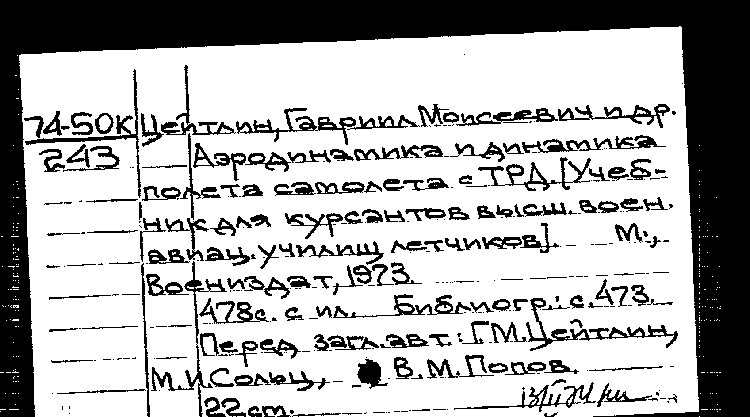 74-50К Цейтлин, Гавриил Моисеевич и др.
243 Аэродинамика и динамика
полета самолета с ТРД. [Учеб-
ник для курсантов высш. воен.
авиац. училищ летчиков]. М.,
Воениздат, 1973.
478с. с ил. Библиогр.: с. 473.
Перед загл. авт.: Г.М. Цейтлин,
М.И. Сольц, В.М. Попов.
22 cm.